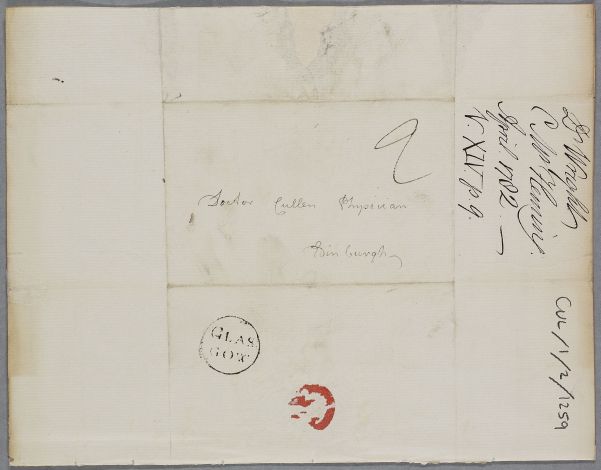 2
Doctor Cullen Physician
Edinburgh
GLAS
GOW
C. Mr Fleming.
April. 1782. —
V. XIV. p. 9.
CUL/1/2/1259